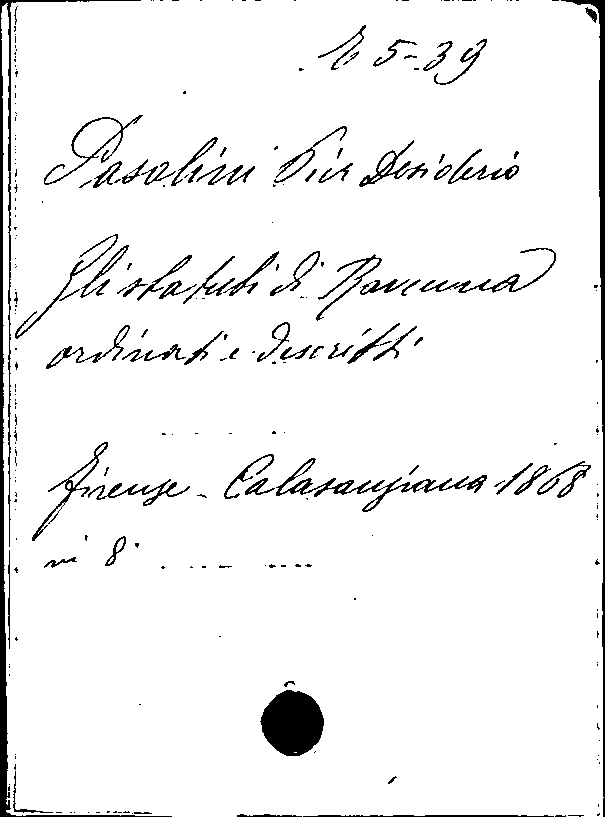 E 5-39
Pasolini Pier Desiderio
Gli statuti di Ravenna
ordinati e descritti
Firenze - Calasanziana 1868
in 8°